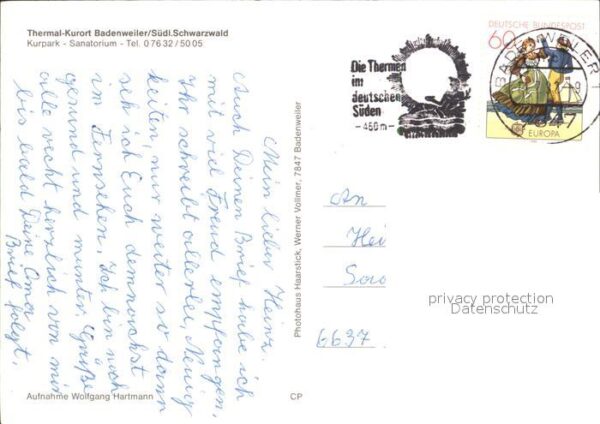 Thermal-Kurort Badenweiler/Südl.Schwarzwald
Kurpark - Sanatorium - Tel. 0 76 32 / 50 05
Mein lieber Heinz.
Auch Deinen Brief habe ich
mit viel Freud empfangen,
Ihr schreibt allerlei, Neuig
keiten, nur weiter so dann
seh ich Euch demnächst
im Fernsehen. Ich bin noch
gesund und munter. Grüße
alle recht herzlich von mir
bis bald Deine Oma
Brief folgt.
Aufnahme Wolfgang Hartmann
CP
Photohaus Haarstick, Werner Vollmer, 7847 Badenweiler
Die Thermen
im
deutschen
Süden
- 450 m -
DEUTSCHE BUNDESPOST
60
EUROPA
BADENWEILER 1
An
Hei
6637
privacy protection
Datenschutz